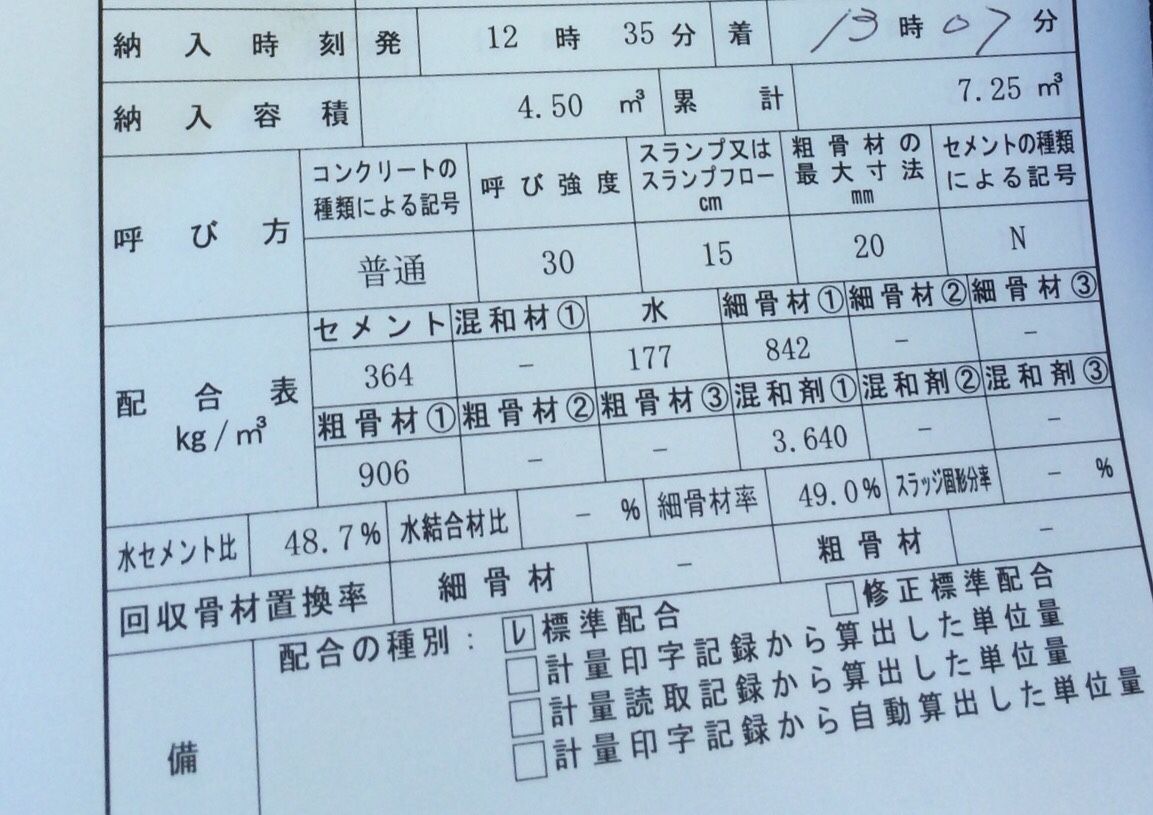 納入時刻 発 12時 35分 着 13時07分
納入容積 4.50 m³ 累計 7.25 m³
呼び方
コンクリートの種類による記号 呼び強度 スランプ又はスランプフロー cm 粗骨材の最大寸法 mm セメントの種類による記号
普通 30 15 20 N
配合表 kg/m³
セメント 混和材① 水 細骨材① 細骨材② 細骨材③
364 － 177 842 － －
粗骨材① 粗骨材② 粗骨材③ 混和剤① 混和剤② 混和剤③
906 － － 3.640 － －
水セメント比 48.7% 水結合材比 － % 細骨材率 49.0% スラッジ固形分率 － %
回収骨材置換率 細骨材 － 粗骨材 －
備
配合の種別： レ 標準配合 □ 修正標準配合
□ 計量印字記録から算出した単位量
□ 計量読取記録から算出した単位量
□ 計量印字記録から自動算出した単位量